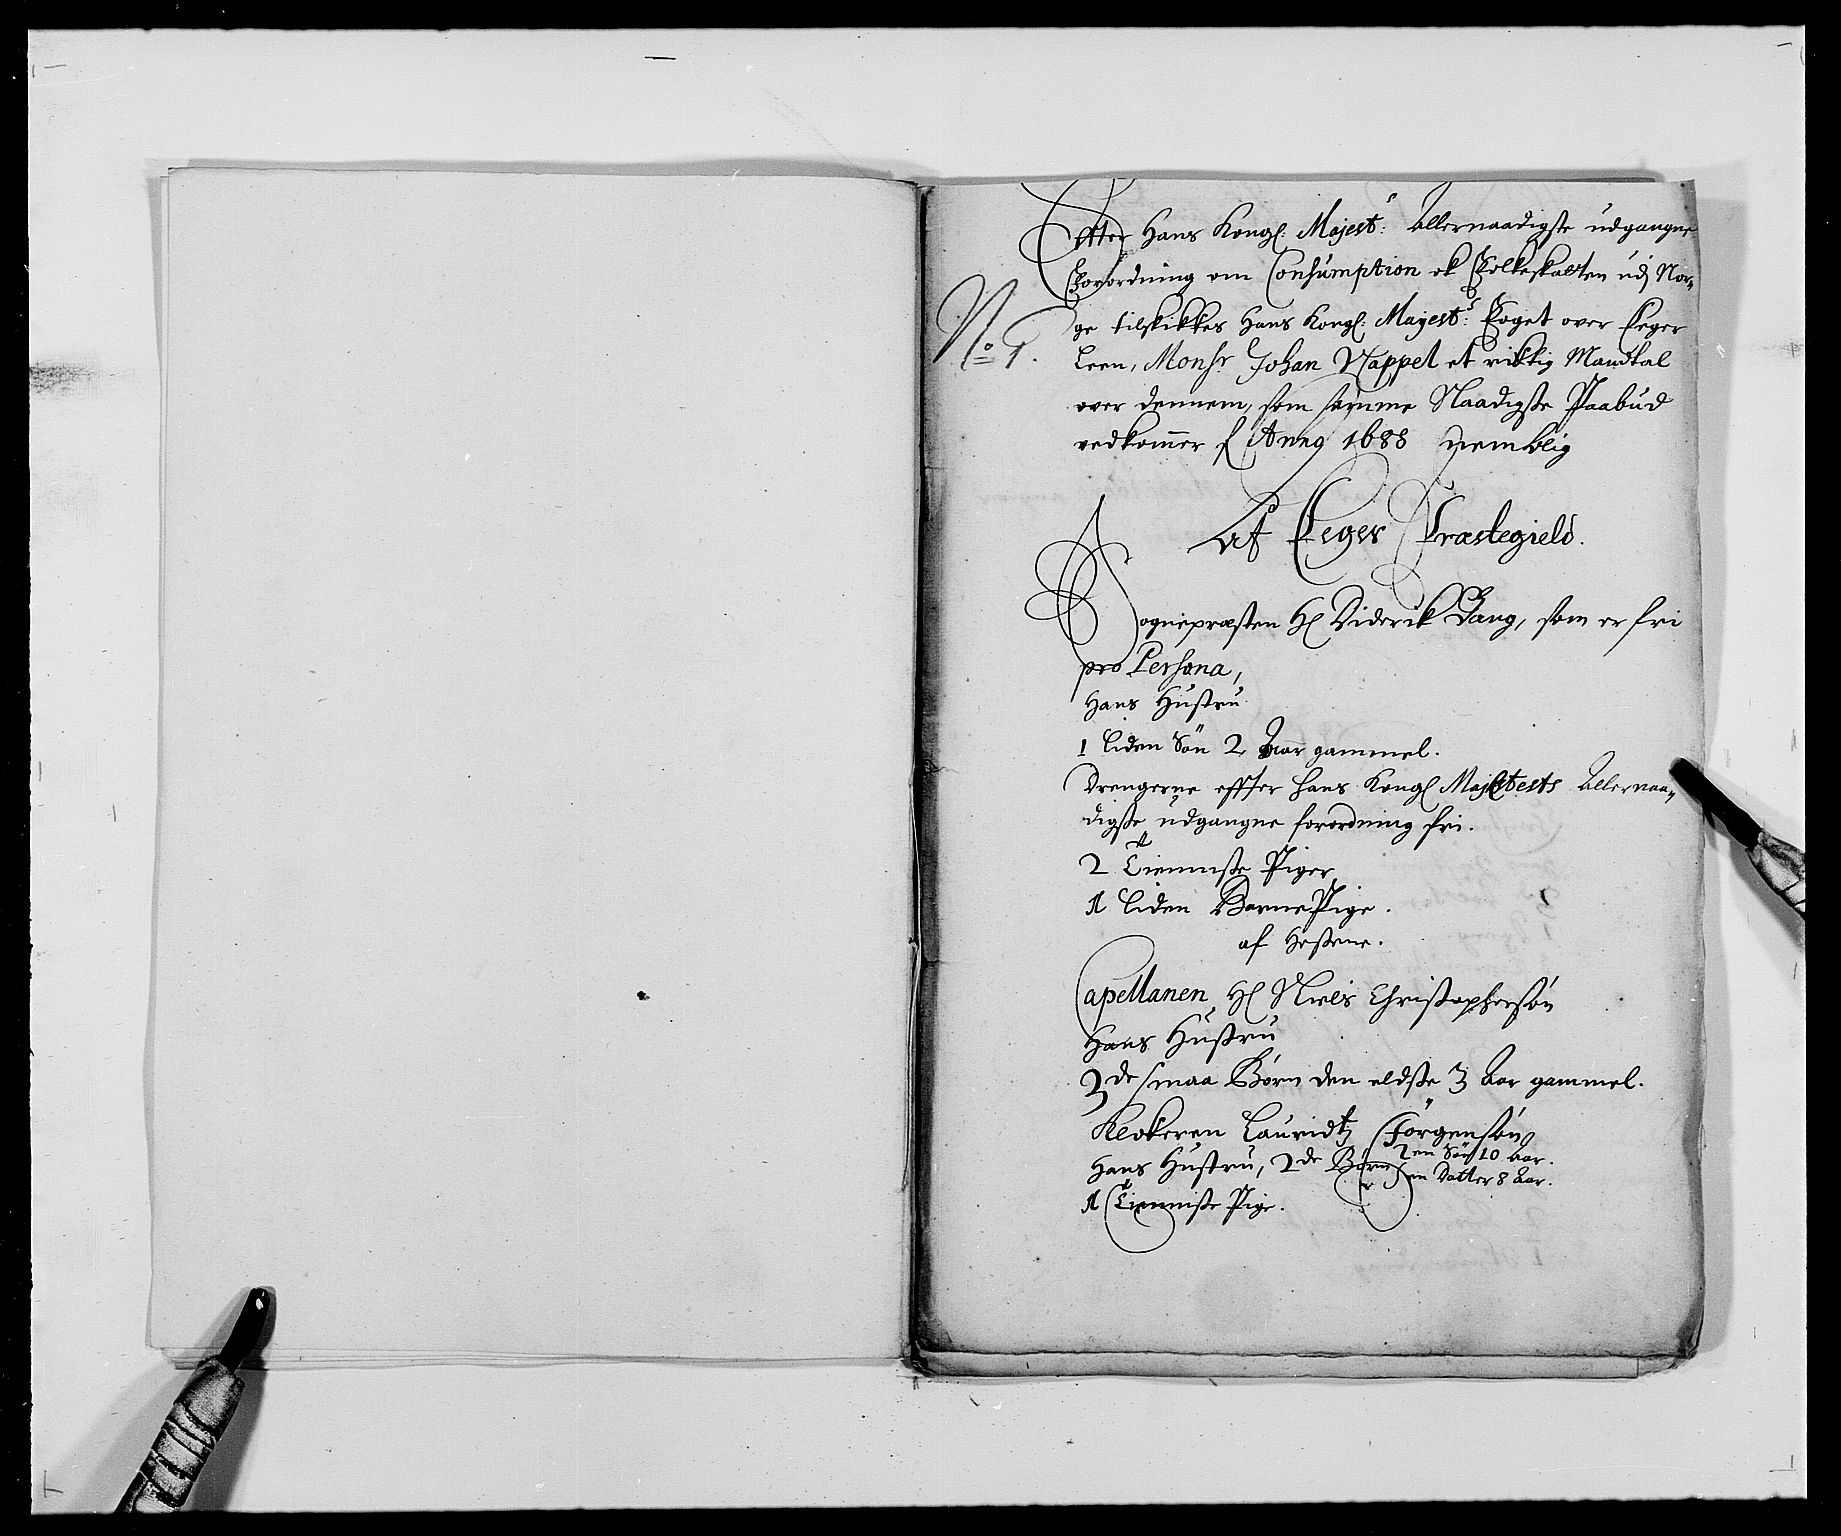 Efter Hans Kongl: Majest:s Allernaadigste udgangne
Forordning om Consumption ok Folkeskatten udj Nor-
No 1.
ge tilskikkes Hans Kongl: Mayest:s Foget over Eeger
Leen, Monsr Johan Nappel et riktig Mandtal
over dennem, som samme Naadigste Paabud
vedkommer p Anno 1688 Nemblig
Af Eeger Præstegield.
Sognepræsten Hl Diderik Bang, som er fri
pro Persona,
Hans Hustru
1 liden Søn 2 Aar gammel.
Drengerne effter hans Kongl Majestets Allernaa-
digste udgangne forordning fri.
2 Tienniste Piger
1 liden BarnePige.
af Hestene.
Capellanen Hl Niels Christophersøn
Hans Hustru
3de smaa Børn den eldste 3 Aar gammel.
Klokeren Lauridtz Jørgensøn
Hans Hustru, 2de Børn en Søn 10 Aar.
en Datter 8 Aar.
1 Tienniste Pige.